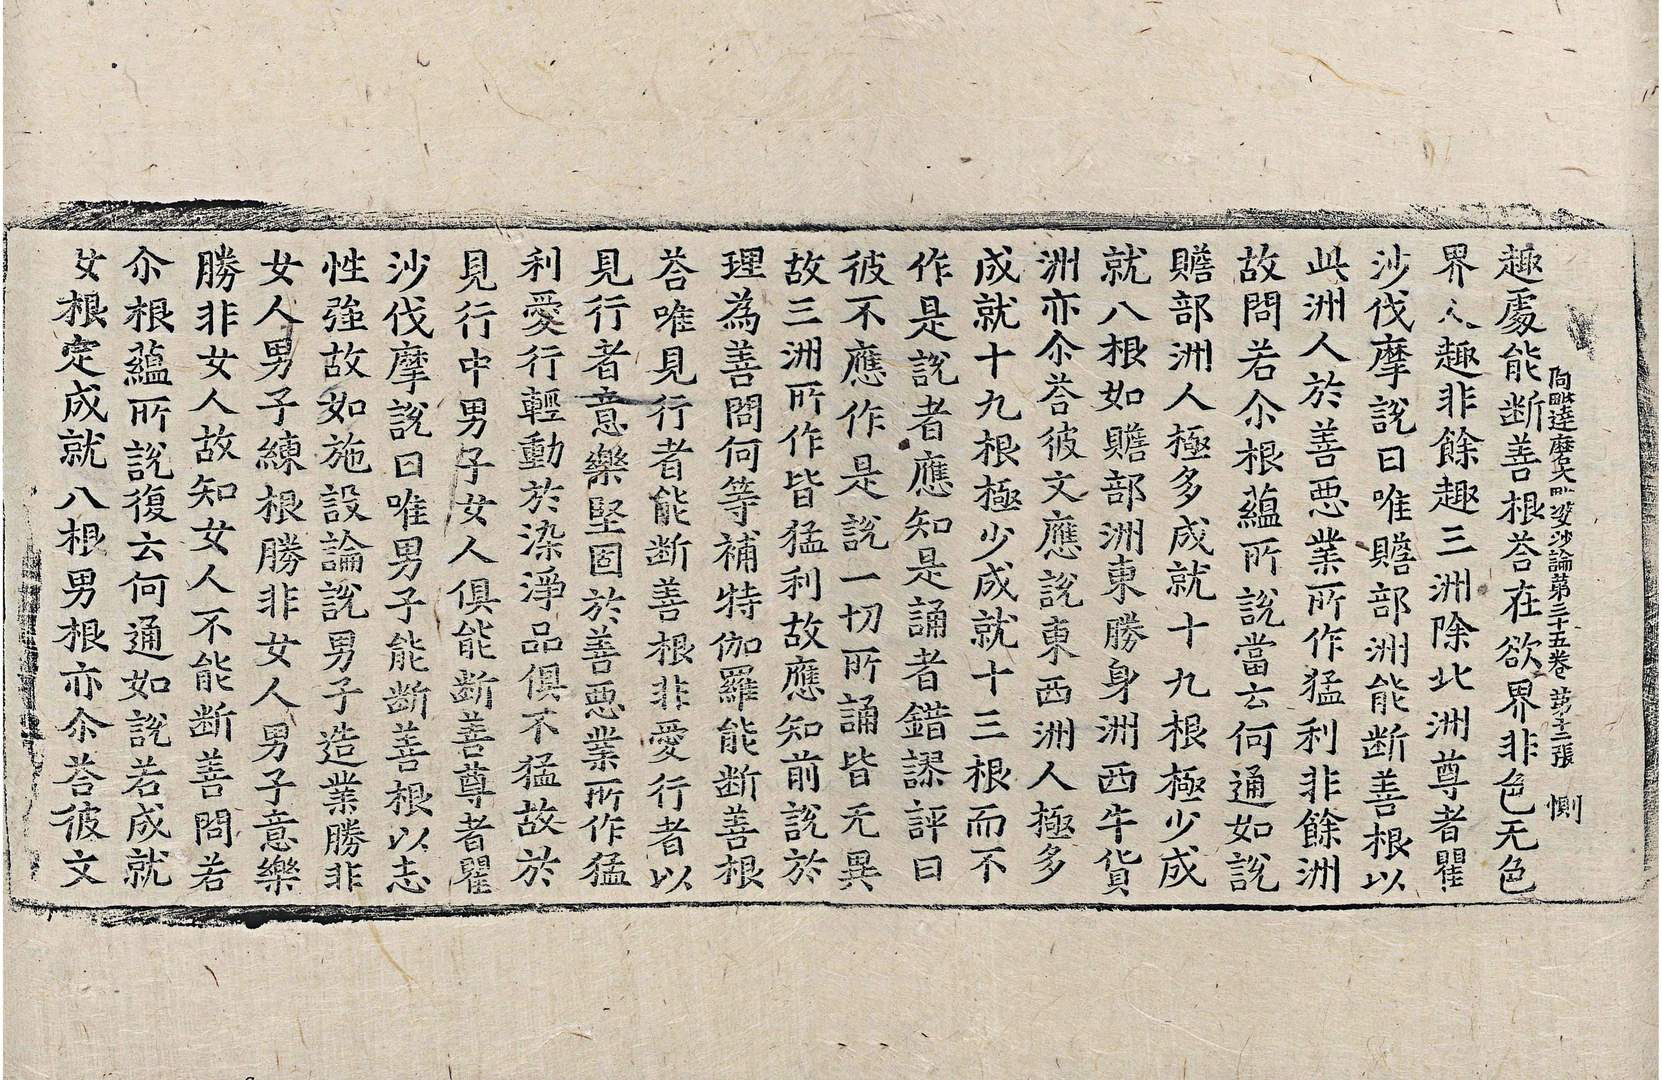 阿毗達磨大毗婆沙論第三十五卷 第十三張 惻
趣處能断善根荅在欲界非色无色
界人趣非餘趣三洲除北洲尊者瞿
沙伐摩說曰唯贍部洲能断善根以
此洲人於善惡業所作猛利非餘洲
故問若尒根蘊所說當云何通如說
贍部洲人極多成就十九根極少成
就八根如贍部洲東勝身洲西牛貨
洲亦尒荅彼文應說東西洲人極多
成就十九根極少成就十三根而不
作是說者應知是誦者錯謬評曰
彼不應作是說一切所誦皆无異
故三洲所作皆猛利故應知前說於
理為善問何等補特伽羅能断善根
荅唯見行者能断善根非愛行者以
見行者意樂堅固於善惡業所作猛
利愛行輕動於染淨品俱不猛故於
見行中男子女人俱能断善尊者瞿
沙伐摩說曰唯男子能断善根以志
性強故如施設論說男子造業勝非
女人男子練根勝非女人男子意樂
勝非女人故知女人不能断善問若
尒根蘊所說復云何通如說若成就
女根定成就八根男根亦尒荅彼文